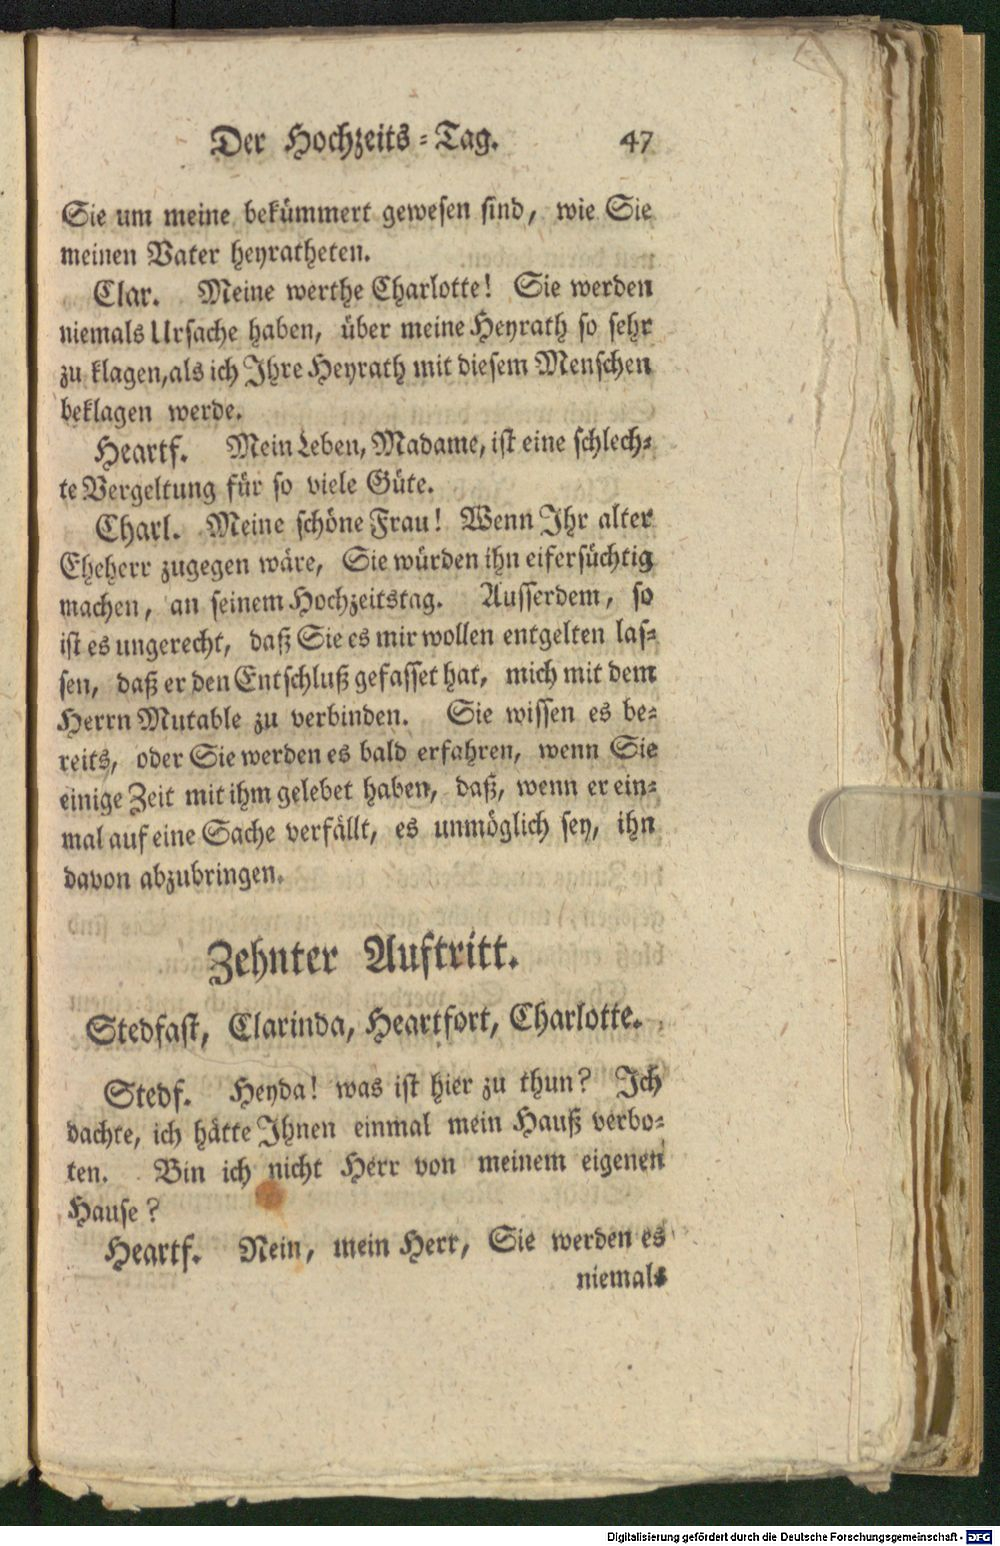 Der Hochzeits-Tag. 47
Sie um meine bekümmert gewesen sind, wie Sie
meinen Vater heyratheten.
Clar. Meine werthe Charlotte! Sie werden
niemals Ursache haben, über meine Heyrath so sehr
zu klagen, als ich Ihre Heyrath mit diesem Menschen
beklagen werde.
Heartf. Mein Leben, Madame, ist eine schlech-
te Vergeltung für so viele Güte.
Charl. Meine schöne Frau! Wenn Ihr alter
Eheherr zugegen wäre, Sie würden ihn eifersüchtig
machen, an seinem Hochzeitstag. Ausserdem, so
ist es ungerecht, daß Sie es mir wollen entgelten las-
sen, daß er den Entschluß gefasset hat, mich mit dem
Herrn Mutable zu verbinden. Sie wissen es be-
reits, oder Sie werden es bald erfahren, wenn Sie
einige Zeit mit ihm gelebet haben, daß, wenn er ein-
mal auf eine Sache verfällt, es unmöglich sey, ihn
davon abzubringen.
Zehnter Auftritt.
Stedfast, Clarinda, Heartfort, Charlotte.
Stedf. Heyda! was ist hier zu thun? Ich
dachte, ich hätte Ihnen einmal mein Hauß verbo-
ten. Bin ich nicht Herr von meinem eigenen
Hause?
Heartf. Nein, mein Herr, Sie werden es
niemals
Digitalisierung gefördert durch die Deutsche Forschungsgemeinschaft - DFG